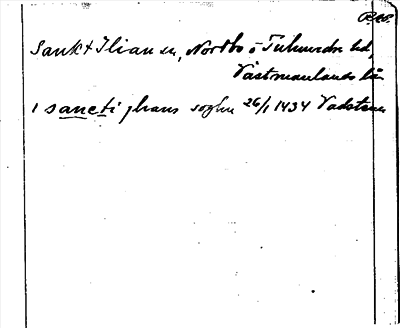 Sankt Ilian sn, Norrbo o Tuhundra hd,
Västmanlands län
i sancti jlians soghn 26/1 1434 Vadstena